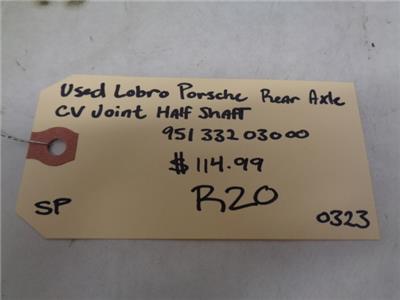 Used Lobro Porsche Rear Axle
CV Joint Half Shaft
951 332 03000
$114.99
R20
SP
0323